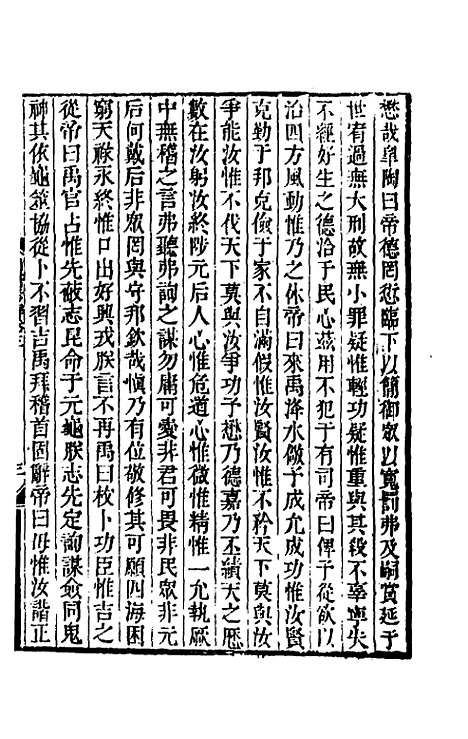 懋哉皐陶曰帝德罔愆臨下以簡御眾以寬罰弗及嗣賞延于
世宥過無大刑故無小罪疑惟輕功疑惟重與其殺不辜寧失
不經好生之德洽于民心茲用不犯于有司帝曰俾予從欲以
治四方風動惟乃之休帝曰來禹降水儆予成允成功惟汝賢
克勤于邦克儉于家不自滿假惟汝賢汝惟不矜天下莫與汝
爭能汝惟不伐天下莫與汝爭功予懋乃德嘉乃丕績天之歷
數在汝躬汝終陟元后人心惟危道心惟微惟精惟一允執厥
中無稽之言弗聽弗詢之謀勿庸可愛非君可畏非民眾非元
后何戴后非眾罔與守邦欽哉慎乃有位敬修其可願四海困
窮天祿永終惟口出好興戎朕言不再禹曰枚卜功臣惟吉之
從帝曰禹官占惟先蔽志昆命于元龜朕志先定詢謀僉同鬼
神其依龜筮協從卜不習吉禹拜稽首固辭帝曰毋惟汝諧正